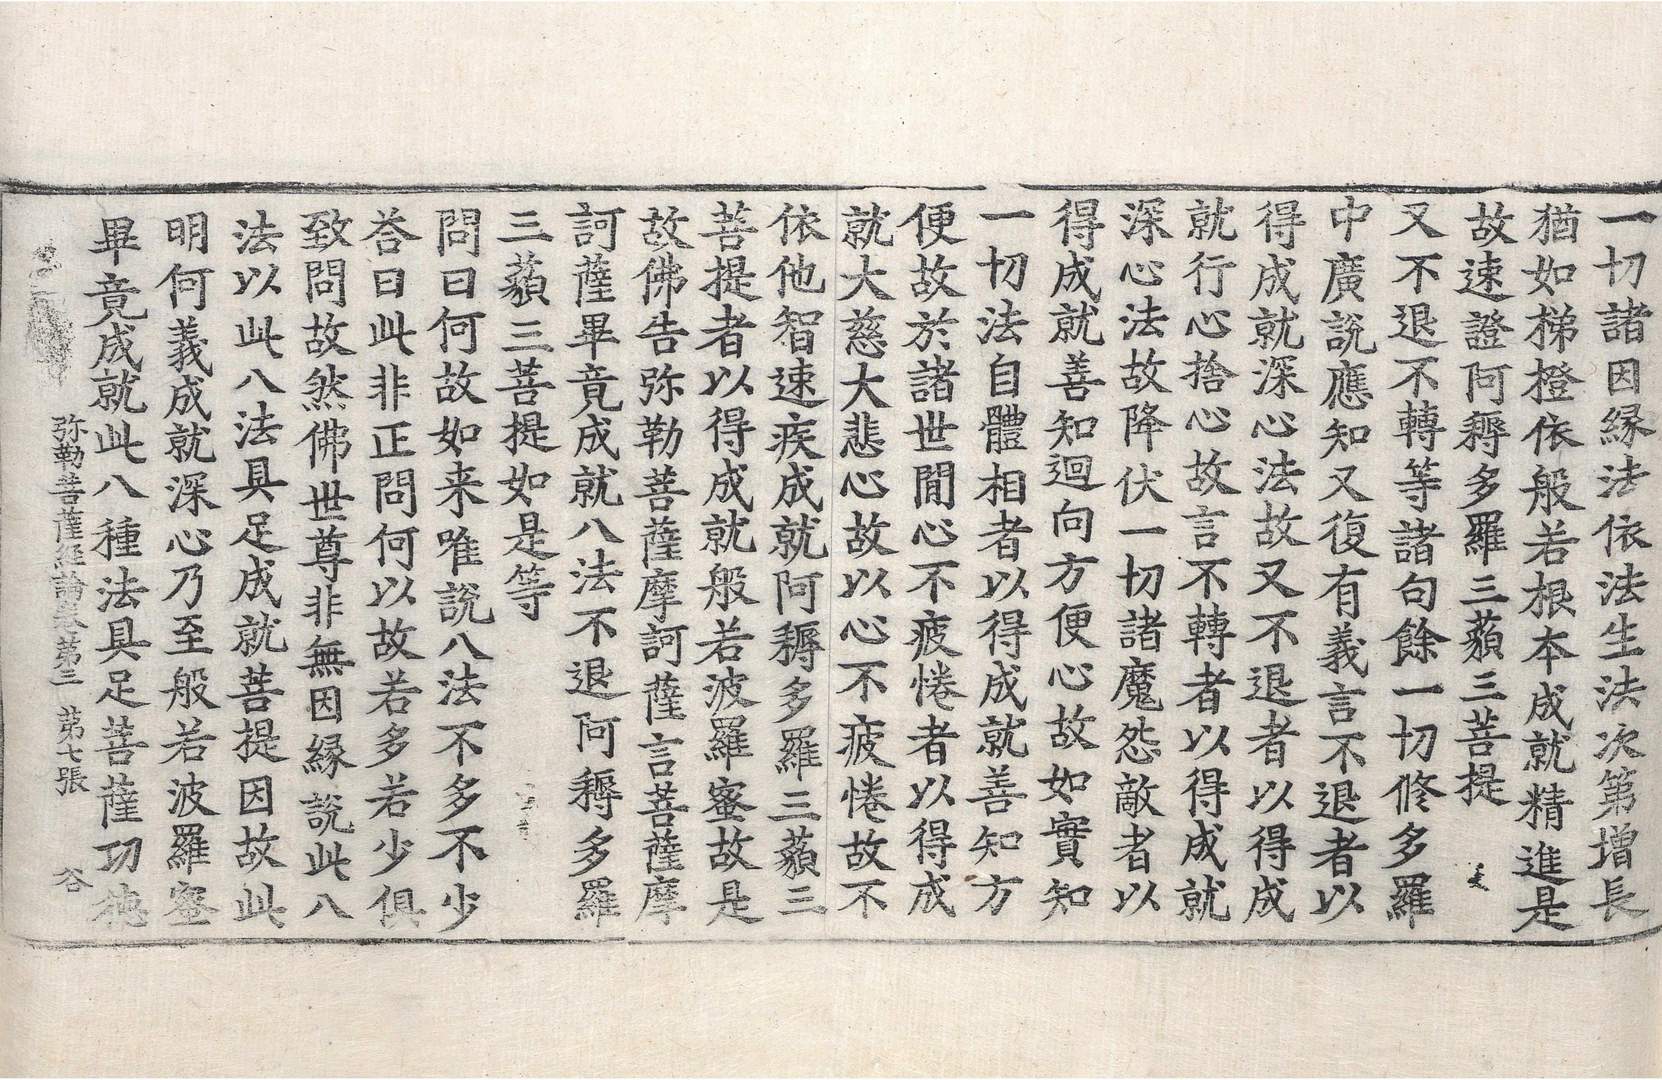 一切諸因縁法依法生法次第增長
猶如梯橙依般若根本成就精進是
故速證阿耨多羅三藐三菩提
又不退不轉等諸句餘一切修多羅
中廣說應知又復有義言不退者以
得成就深心法故又不退者以得成
就行心捨心故言不轉者以得成就
深心法故降伏一切諸魔怨敵者以
得成就善知迴向方便心故如實知
一切法自體相者以得成就善知方
便故於諸世間心不疲惓者以得成
就大慈大悲心故以心不疲惓故不
依他智速疾成就阿耨多羅三藐三
菩提者以得成就般若波羅蜜故是
故佛告弥勒菩薩摩訶薩言菩薩摩
訶薩畢竟成就八法不退阿耨多羅
三藐三菩提如是等
問曰何故如来唯說八法不多不少
荅曰此非正問何以故若多若少俱
致問故然佛世尊非無因縁說此八
法以此八法具足成就菩提因故此
明何義成就深心乃至般若波羅蜜
畢竟成就此八種法具足菩薩功德
弥勒菩薩經論卷第三 第七張 谷